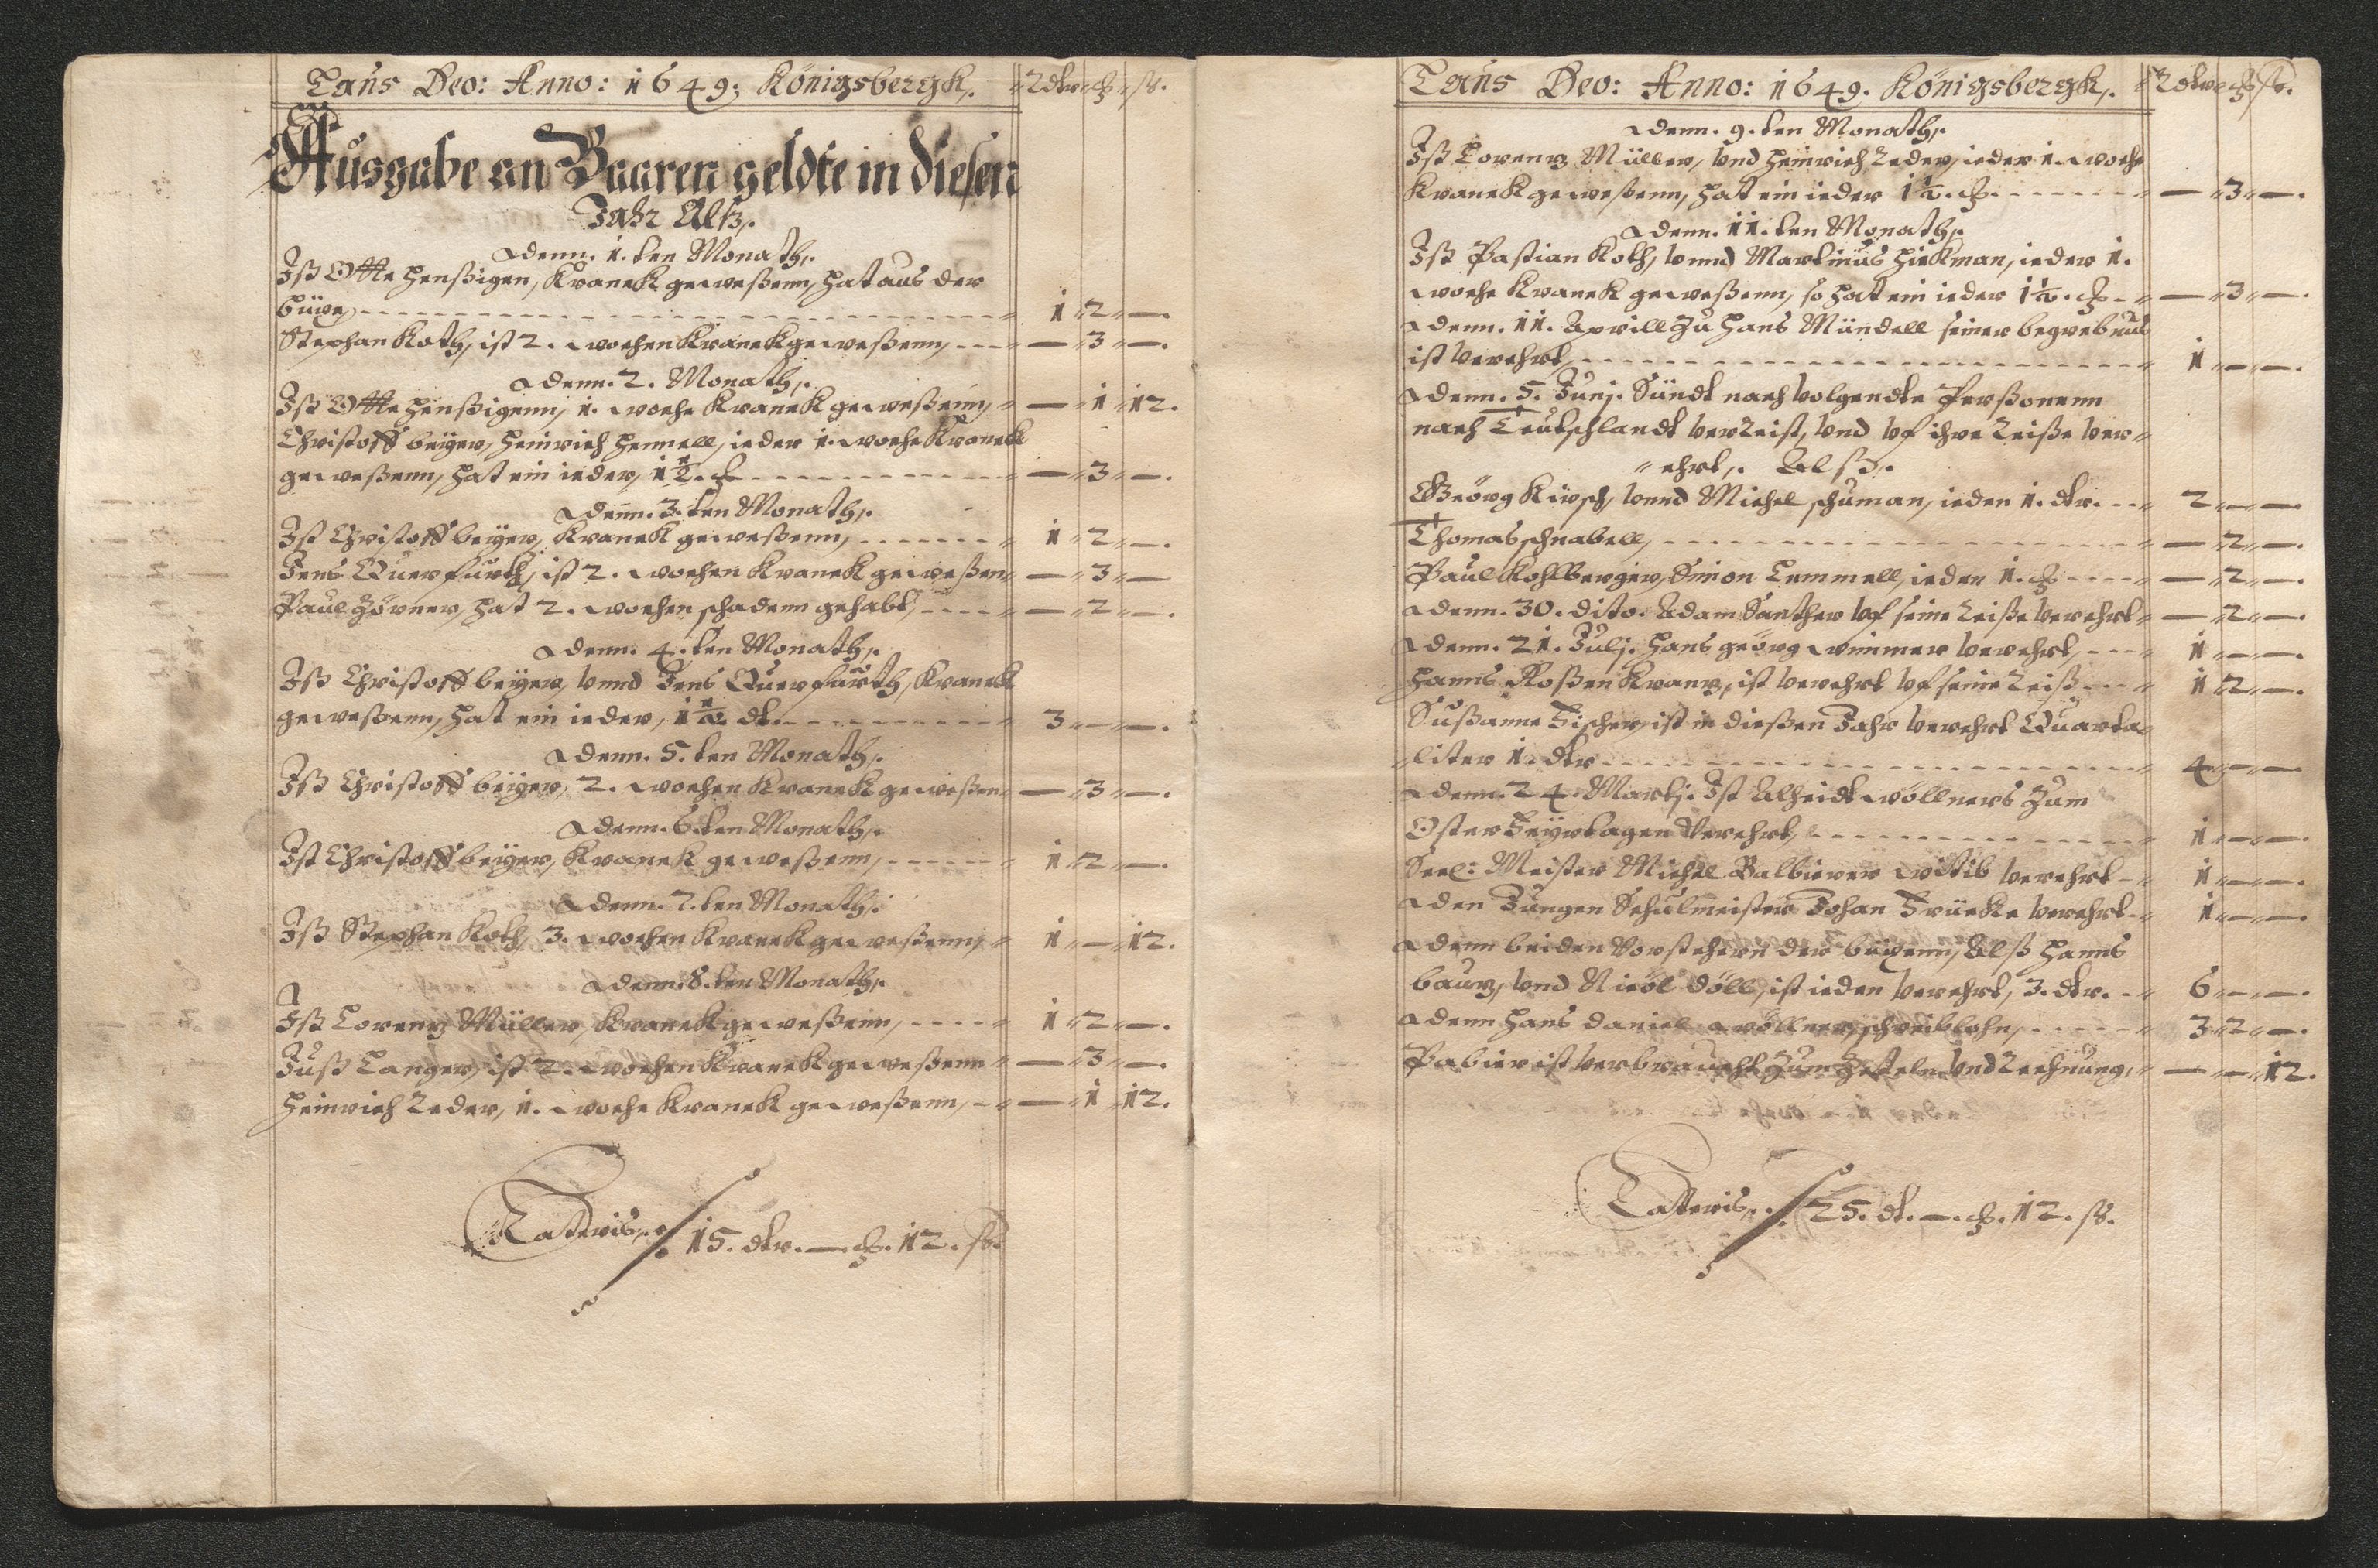 Laus Deo: Anno: 1649: Königsbergk,. Rdlr ß.
Ausgabe an Baaren geldte in diesen
Jahr Alß,.
Adenn. 1. ten Monath,.
Ist Otte Henßigen, Kranck geweßenn, hat aus der
büxe, 1 2 —.
Stephan Koth, ist 2. wochen Kranck geweßenn, — 3 —.
Adenn. 2. Monath,.
Ist Otte Henßigenn, 1. woche Kranck geweßenn, — 1 12.
Christoff beÿer, Heinrich Hennell, ieder 1. woche Kranck
geweßenn, hat ein ieder, 1 1/2. — 3 —.
Adenn. 3. ten Monath,.
Ist Christoff beÿer, Kranck geweßenn, 1 2 —.
Jens Querfurth, ist 2. wochen Kranck geweßen — 3 —
Paul Zörner, hat 2. wochen schadenn gehabt, — 2 —.
Adenn. 4. ten Monath,.
Ist Christoff beÿer, vnnd Jens Querfurth, Kranck
geweßenn, hat ein ieder, 1 1/2 dl. 3 — —.
Adenn. 5. ten Monath,.
Ist Christoff beÿer, 2. wochen Kranck geweßen — 3 —.
Adenn. 6. ten Monath,.
Ist Christoff beÿer, Kranck geweßenn, 1 2 —.
Adenn. 7. ten Monath,.
Ist Stephan Koth, 3. wochen Kranck geweßenn, 1 — 12.
Adenn. 8. ten Monath,.
Ist Lorentz Müller, Kranck geweßenn, 1 2 —.
Just Langer, ist 2. wochen Kranck geweßenn — 3 —.
Heinrich Zeder, 1. woche Kranck geweßenn, — 1 12.
Latteris,. 15. dlr. — . 12. ß.
Laus Deo: Anno: 1649. Königsbergk,. Rdlr ß.
Adenn. 9. ten Monath,.
Ist Lorentz Müller, vnd Heinrich Zeder, ieder 1. woche
Kranck geweßenn, hat ein ieder 1 1/2. — 3 —.
Adenn. 11. ten Monath,.
Ist Pastian Koth, vnnd Martinus Hickman, ieder 1.
woche Kranck geweßenn, so hat ein ieder 1 1/2. — 3 —.
Adenn. 11. Aprill zu Hans Mündell seiner begrebnus
ist verehrt, 1 — —.
Adenn. 5. Junj. Sündt nach volgendte Perßonenn
nach Teutschlandt verreist, vnd vf ihre reiße ver=
=ehrt,. Alß,.
Geörg Kirsch, vnnd Michel schuman, ieden 1. dlr. 2 — —.
Thomas schnabell, — 2 —.
Paul Kohlberger, Simon Lemmell, ieden 1. — 2 —.
Adenn. 30. dito. Adam Santher vf seine reiße verehrt — 2 —.
Adenn. 21. Julj. Hans geörg wimmer verehrt, 1 — —.
Hanns Roßen Krantz, ist verehrt vf seine reiß 1 2 —.
Sußanne Fischer, ist in dießen Jahr verehrt Quarta=
=liter 1. dlr 4 — —.
Adenn. 24. Martj. Ist Alheidt wöllners zum
Oster Feÿrtagen Verehrt, 1 — —.
Seel: Meister Michel Balbirer witib verehrt 1 — —.
Aden Jungen Schulmeister Johan Frücke verehrt 1 — —.
Adenn beiden Vorstehern der büxenn, Alß Hanns
baur, vnd Nicol Döll, ist ieden verehrt, 3. dlr. 6 — —.
Adenn Hans Daniel wöllner, schreiblohn, 3 2 —.
Pabier ist verbraucht zum Zetteln vnd Rechnung, — — 12.
Latteris,. 25. dl. — . 12. ß.